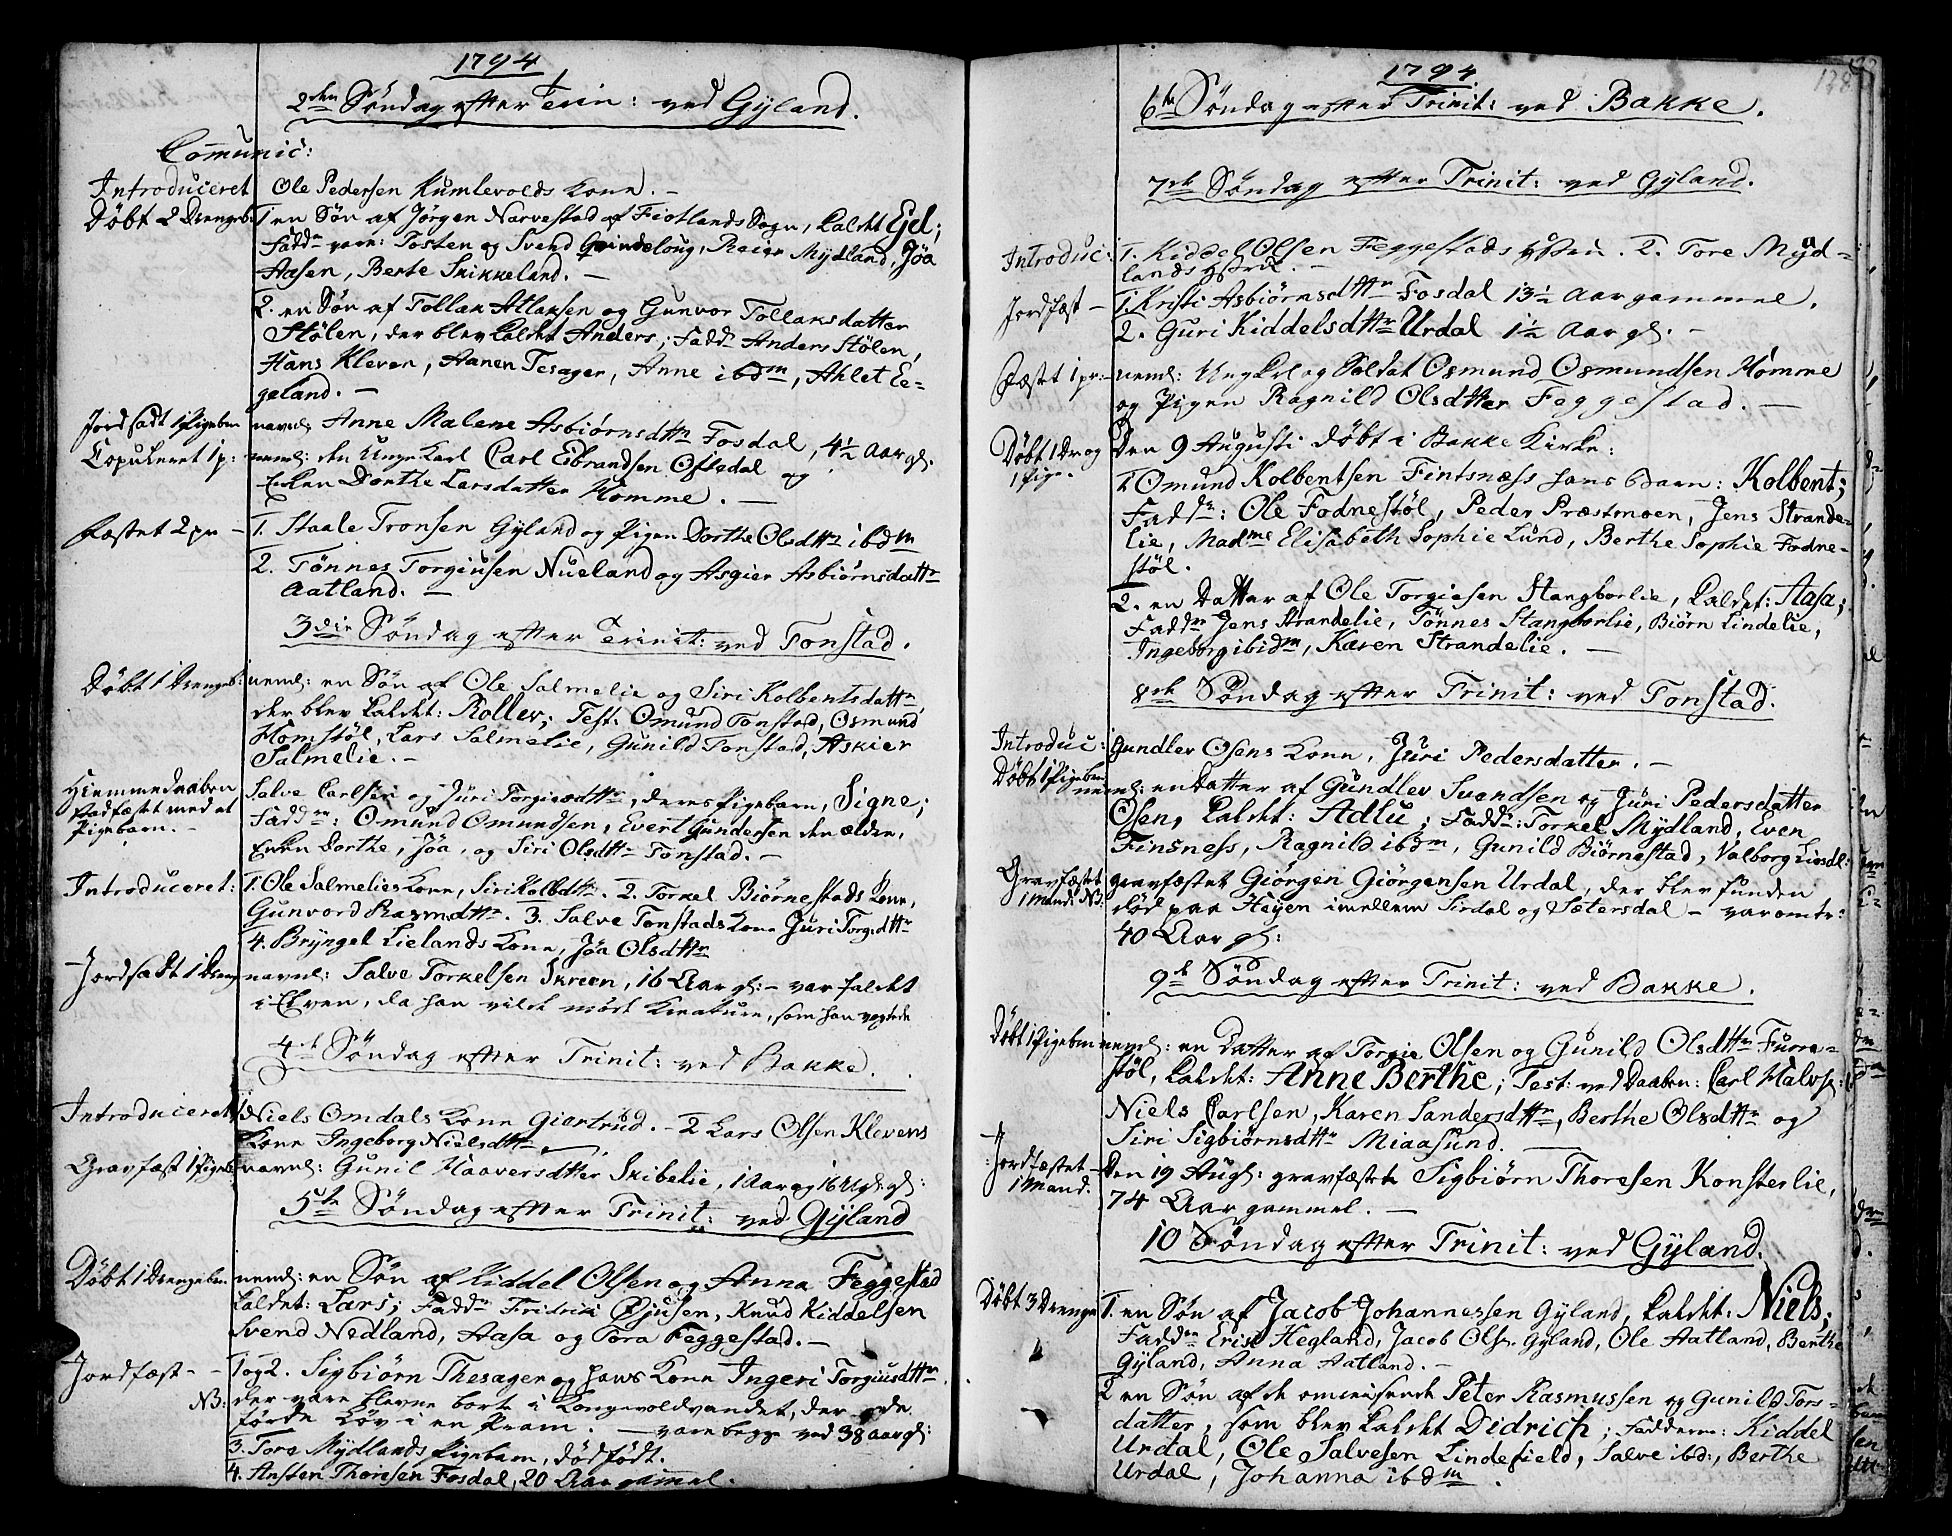 1794
2den Søndag efter Trin: ved Gyland.
Comunic:
Introduceret Ole Pedersen Kumlevolds Kone. –
Døbt 2 Drengeb: 1 en Søn af Jørgen Narvestad af Fiotlands Sogn, kaldet Ejel;
Fadd: vare: Tosten og Svend Grindelong, Reier Mydland, Jøa
Aasen, Berte Skikkeland. –
2. en Søn af Tollak Atlaksen og Gunvor Tollaksdatter
Stølen, der blev kaldet Anders; Fadd: Anders Stølen,
Hans Kleven, Aanen Tesager, Anne ibdm, Ahlet Ee=
geland. –
Jordsadt 1 Pigebm navnl: Anne Malene Asbiørnsdttr Fosdal, 4½ Aar gl.
Copuleret 1 p: neml: den Unge Karl Carl Eibrandsen Oftedal og
Enken Dorthe Larsdatter Homme. –
Fæstet 2 pr – 1. Staale Tronsen Gyland og Pigen Dorthe Olsdttr ibdm
2. Tønnes Torgiusen Nueland og Asgier Asbiørnsdattr
Aatland. –
3die Søndag efter Trinit: ved Tonstad.
Døbt 1 Drengeb: neml: en Søn af Ole Salmelie og Siri Kolbentsdattr
der blev kaldet: Rollev; Test: Omund Tonstad, Osmund
Homstøl, Lars Salmelie, Gunild Tonstad, Askier
Salmelie. –
Hiemmedaaben
Stadfæstet med et
Pigebarn. –
Salve Carlsen og Juri Torgiesdttr, deres Pigebarn, Signe;
Faddr: Omund Omundsen, Evert Gundersen den ældre,
Enken Dorthe, Jøa, og Siri Olsdttr Tonstad. –
Introduceret: 1. Ole Salmelies Kone, Siri Kolbdttr. 2. Torkel Biørnestads Kone,
Gunvord Rasmdttr. 3. Salve Tonstads Kone Juri Torgsdttr
4. Bryngel Lielands Kone, Jøa Olsdttr
Jordsædt 1 Dreng navnl: Salve Torkelsen Skreen, 16 Aar gl: – var faldet
i Elven, da han vilde mødt Kreaturer, som han vogtede
4de Søndag efter Trinit: ved Bakke.
Introduceret 1. Niels Omdals Kone Giertrud. – 2 Lars Olsen Klevens
Kone Ingeborg Nielsdttr
Gravfæst 1 Pigeb: navnl: Gunil Haaversdtter Skibelie, 1 Aar og 16 Ug: gl:
5te Søndag efter Trinit: ved Gyland
Døbt 1 Drengebm neml: en Søn af Kiddel Olsen og Anna Feggestad
kaldet: Lars; Faddr Fridrich Øjusen, Knud Kiddelsen
Svend Nedland, Aasa og Tora Feggestad. –
Jordfæst – – 1 og 2. Sigbiørn Thesager og hans Kone Ingeri Torgiusdttr
NB: der vare blevne borte i Longevoldvandet, der de
førde Løv i en Pram. – vare begge ved 38 aar gl:
3. Tore Mydlands Pigebarn, dødfødt.
4. Ansten Thoresen Fosdal, 20 Aar gamel.
1794
6te Søndag efter Trinit: ved Bakke.
7de Søndag efter Trinit: ved Gyland.
Introduc: 1. Kiddel Olsen Feggestads Hstru. 2. Tore Myd=
lands Hstru. –
Jordfæst – 1. Kristi Asbiørnsdttr Fosdal 13½ Aar gammel.
2. Guri Kiddelsdttr Urdal 1½ Aar gl. –
Fæstet 1 pr: – neml: Ungkarl og Soldat Osmund Osmundsen Homme
og Pigen Ragnild Olsdtter Feggestad. –
Døbt 1 Dr og
1 Pige. Den 9 Augusti døbt i Bakke Kirke:
1 Omund Kolbentsen Fintsnæss hans Barn: Kolbent;
Faddr: Ole Fodnestøl, Peder Præstmoen, Jens Strande=
lie, Madme Elisabeth Sophie Lund, Berthe Sophie Fodne=
støl.
2. en Datter af Ole Torgiesen Stangborlie, kaldet: Aasa;
Faddr Jens Strandelie, Tønnes Stangborlie, Biørn Lindelie,
Ingeborg ibidm, Karen Strandelie. –
8de Søndag efter Trinit: ved Tonstad.
Introduc: Gundlev Osens Kone, Juri Pedersdatter. –
Døbt 1 Pigebm neml: en Datter af Gundlev Svendsen og Juri Pedersdatter
Osen, kaldet: Adlu; Faddr: Torkel Mydland, Even
Finsness, Ragnild ibdm, Gunild Biørnestad, Valborg Liosdl:
Gravfæstet
1 Mand: NB: gravfæstet Giørgen Giørgensen Urdal, der blev funden
død paa Heyen imellem Sirdal og Sætersdal – var omtr:
40 Aar gl:
9de Søndag efter Trinit: ved Bakke.
Døbt 1 Pigebm neml: en Datter af Torgie Olsen og Gunild Olsdttr Furre=
støl, kaldet: Anne Berthe; Test: ved Daaben: Carl Halvs:
Niels Carlsen, Karen Sandersdttr, Berthe Olsdttr og
Siri Sigbiørnsdttr Miaasund.
Jordfæstet –
1 Mand. Den 19 Aug: gravfæstet Sigbiørn Thoresen Konsterlie,
74 Aar gammel. –
10 Søndag efter Trinit: ved Gyland.
Døbt 3 Drenge 1. en Søn af Jacob Johannessen Gyland, kaldet: Niels;
Faddr Erik Hegland, Jacob Ols: Gyland, Ole Aatland, Berthe
Gyland, Anna Aatland. –
2 en Søn af de omreisende Peter Rasmussen og Gunild Tors=
datter, som blev kaldet Didrich; Fadderne: Kiddel
Urdal, Ole Salvesen Lindefield, Salve ibd:, Berthe
Urdal, Johanna ibdm.